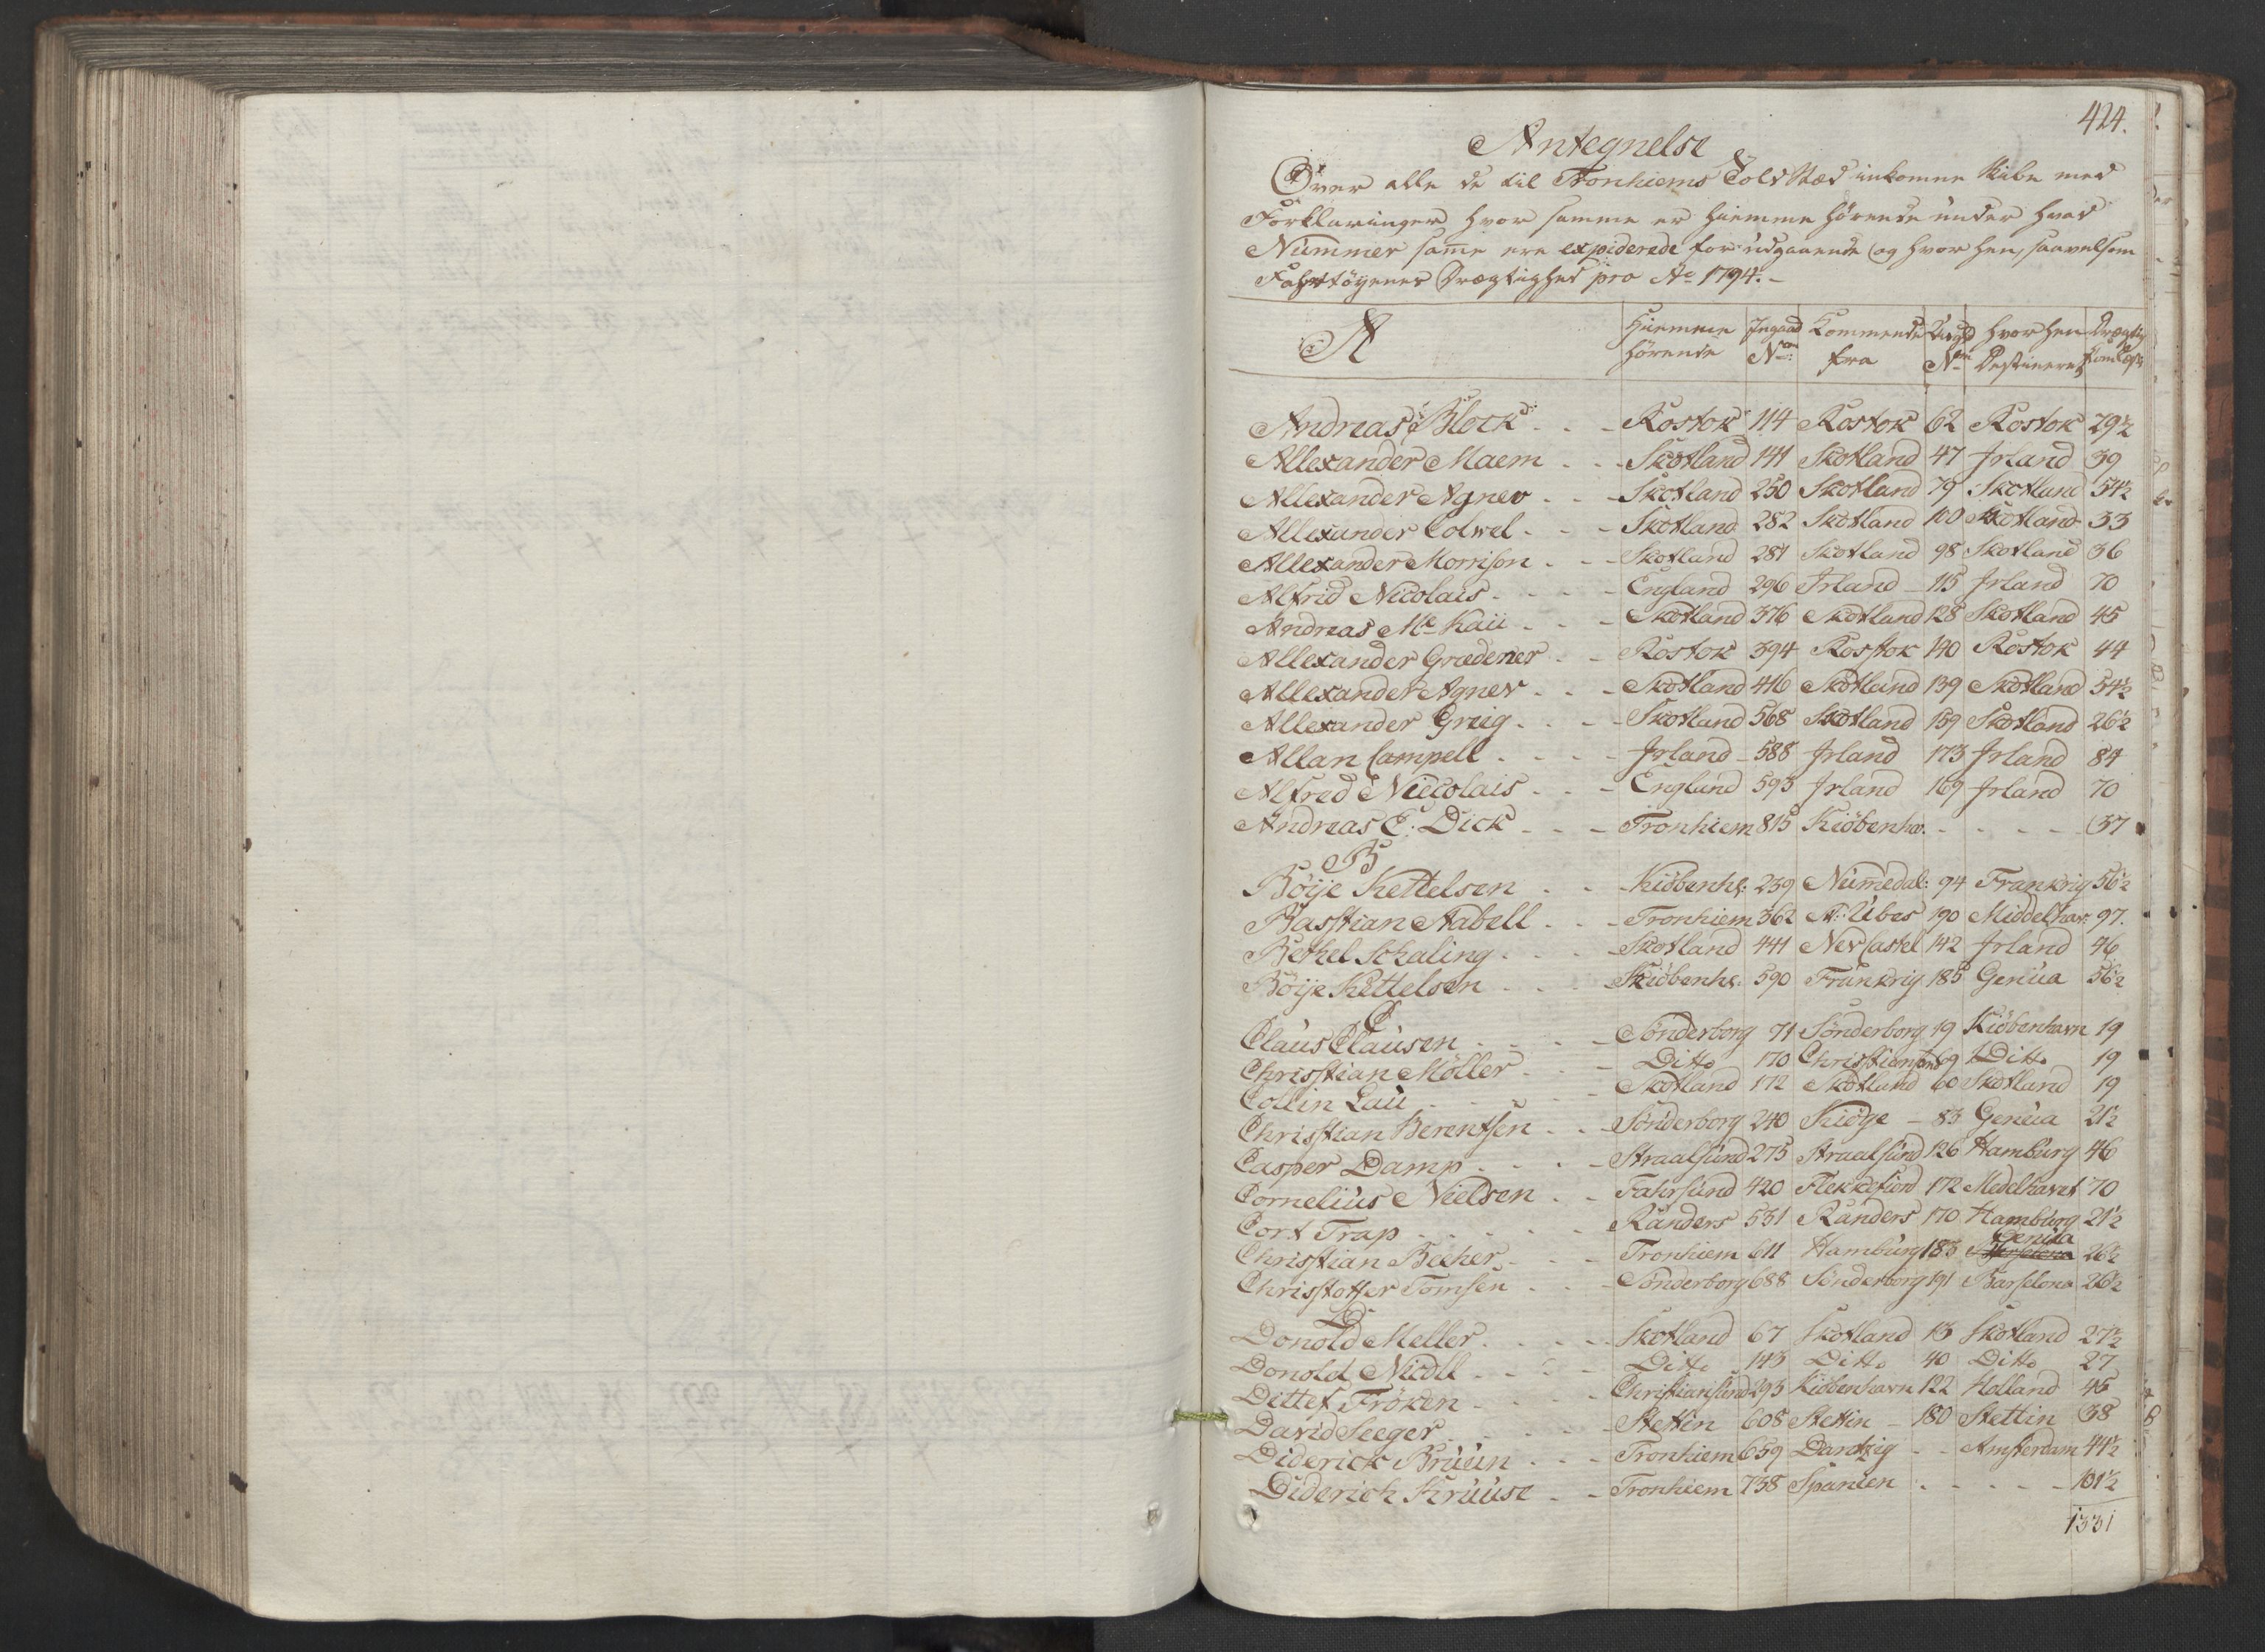 424.
Antegnelse
Over alle de til Tronhiems Told Stæd inkomne Skibe med
Forklaringer hvor samme er hiemme hörende under hvad
Nummer same ere expiderede for udgaaende og hvor hen, saavelsom
Fahrtöyernes Drægtighed pro Ao 1794.
A Hiemme hörende Ingaad No: Kommende fra Udgd No hvor hen Destineret Drægtig
Andreas Block - - - Rostok 114 Rostok 62 Rostok 29½
Allexander Maem - - - Skotland 141 Skotland 47 Jrland 39
Allexander Agnev - - - Skotland 250 Skotland 79 Skotland 54½
Allexander Colwel - - - Skotland 282 Skotland 100 Skotland 33
Allexander Morrison - - - Skotland 281 Skotland 98 Skotland 36
Alfrid Nicolais - - - - England 296 Jrland - 115 Jrland 70
Andreas Mc Kaii - - - Skotland 376 Skotland 128 Skotland 45
Allexander Grædener - - Rostok 394 Rosstok 140 Rostok 44
Allexander Agnev - - - Skotland 416 Skotland 139 Skotland 54½
Allexander Greig - - - - Skotland 568 Skotland 159 Skotland 26½
Allan Campell - - - - Jrland - 588 Jrland 173 Jrland 84
Alfred Niecolais - - - England 593 Jrland 169 Jrland 70
Andreas E: Dick - - - Tronhiem 815 Kiöbenhv. - - - - - 37
B
Böije Kettelsen - - Kiöbenh: 239 Numedal: 94 Frankrig 56½
Basstian Stabell - - - Tronhiem 362 St: Ubes 190 Middelhav: 97.
Bethel Schaling - - - - Skotland 441 Nev Castel 142 Jrland 46
Böije Kettelsen - - - - Kiöbenh: 590 Frankrig 185 Genua 56½
C
Claus Clausen - - - - Sönderborg 71 Sönderborg 19 Kiöbenhavn 19
Chrisstian Möller - - - Ditto 170 Chrisstiansund 69 Ditto 19
Collin Lau - - - - - Skotland 172 Skotland 60 Skotland 19
Chrisstian Berentsen - - Sönderborg 240 Kiöge - 83 Genua 21½
Casper Damp - - - - Straalsund 275 Straalsund 126 Hamburg 46
Cornelius Nielsen - - Fahrsund 420 Flekkefiord 172 Medelhavet 70
Cort Trap - - - - - Randers 531 Randers 170 Hamburg 21½
Chrisstian Becher - - - Tronhiem 611 Hamburg 183 Barselona Genua 26½
Chrisstoffer Tomsen - - - Sönderborg 688 Sönderborg 191 Barselona 26½
D
Donold Meller - - - - - Skotland 67 Skotland 13 Skotland 27½
Donold Nicoll - - - - Ditto 143 Ditto 40 Ditto 27
Dittef Fröken - - - - Christiansund 293 Kiöbenhavn 122 Holland 45
David Seeger - - - - - Stettin 608 Stettin - 180 Stettin 38
Diderick Bruun - - - Tronhiem 659 Dantzig - - Amsterdam 44½
Diderich Kruuse - - Tronhiem 738 Spanien - - - - - 101½
1331